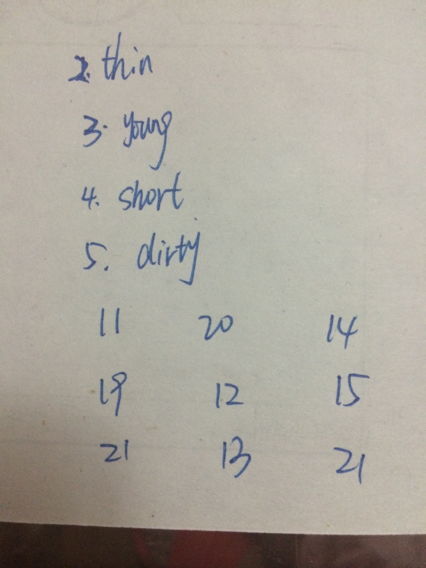 2. thin
3. young
4. short
5. dirty
11 20 14
19 12 15
21 13 21